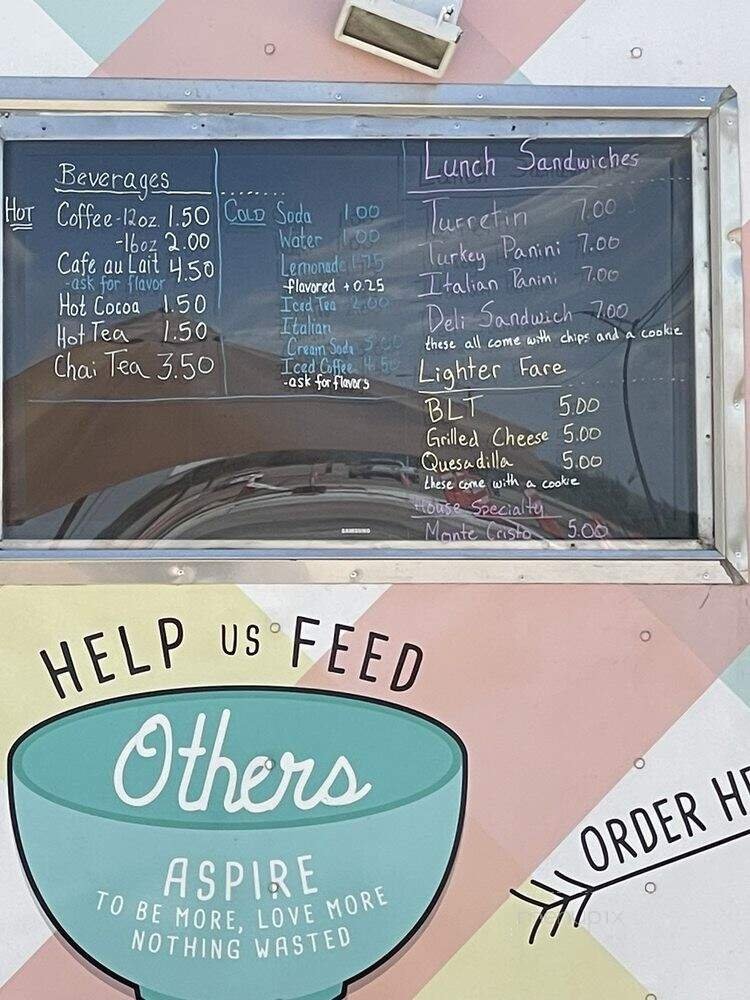 Beverages
HOT
Coffee-12oz. 1.50
-16oz 2.00
Cafe au Lait 4.50
-ask for flavor
Hot Cocoa 1.50
Hot Tea 1.50
Chai Tea 3.50
COLD
Soda 1.00
Water 1.00
Lemonade 1.75
-flavored +0.25
Iced Tea 2.00
Italian
Cream Soda 3.00
Iced Coffee 4.50
-ask for flavors
Lunch Sandwiches
Turretin 7.00
Turkey Panini 7.00
Italian Panini 7.00
Deli Sandwich 7.00
these all come with chips and a cookie
Lighter Fare
BLT 5.00
Grilled Cheese 5.00
Quesadilla 5.00
these come with a cookie
House Specialty
Monte Cristo 5.00
SAMSUNG
HELP US FEED
Others
ASPIRE
TO BE MORE, LOVE MORE
NOTHING WASTED
ORDER HE
menupix